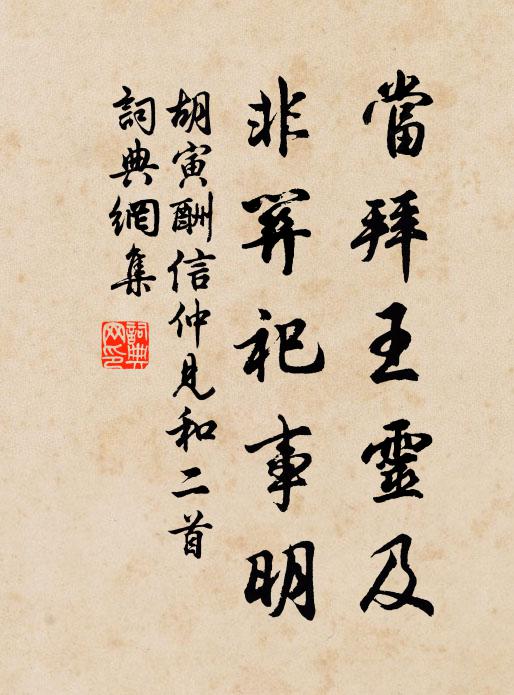 當拜王靈及
非關祀事明
胡寅酬信仲見和二首
詞典網集
詞典
网印